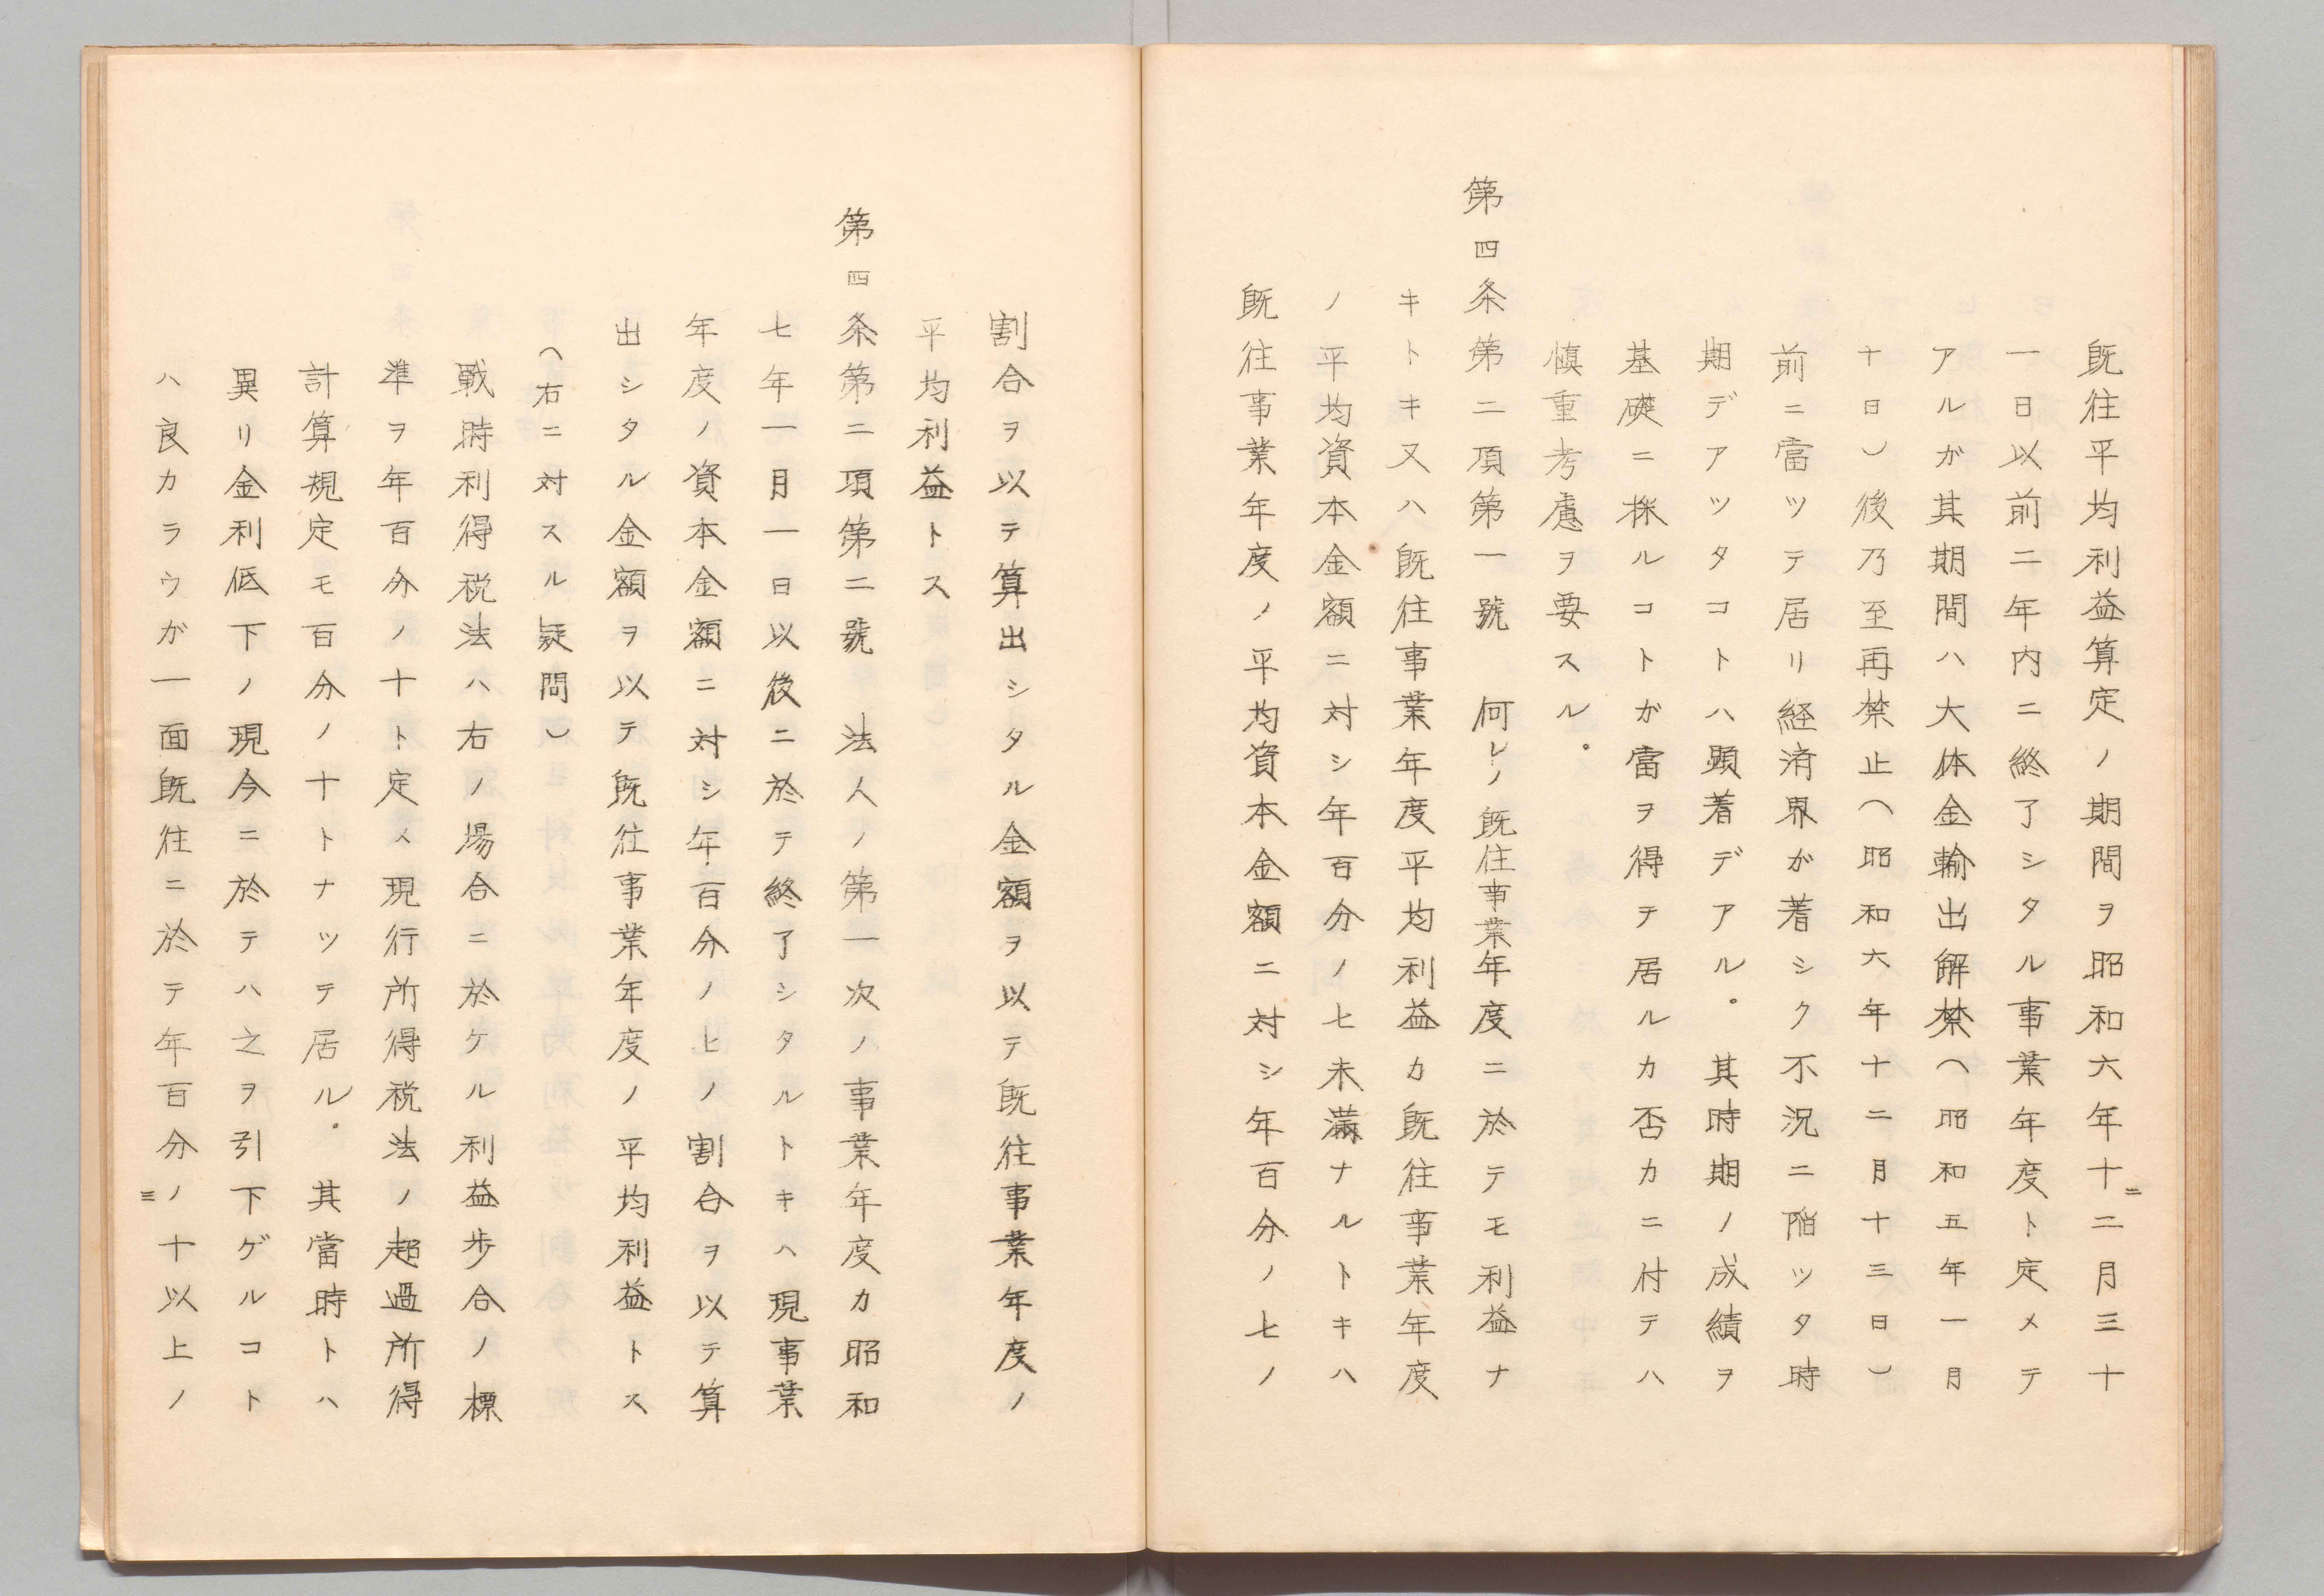 既往平均利益算定ノ期間ヲ昭和六年十二月三十
一日以前二年内ニ終了シタル事業年度ト定メテ
アルガ其期間ハ大体金輸出解禁(昭和五年一月
十日)後乃至再禁止(昭和六年十二月十三日)
前ニ當ツテ居リ経済界ガ着シク不況ニ陥ツタ時
期デアツタコトハ顕着デアル。其時期ノ成績ヲ
基礎ニ採ルコトガ當ヲ得テ居ルカ否カニ付テハ
慎重考慮ヲ要スル。
第四条第二項第一號　何レノ既往事業年度ニ於テモ利益ナ
キトキ又ハ既往事業年度平均利益カ既往事業年度
ノ平均資本金額ニ対シ年百分ノ七未満ナルトキハ
既往事業年度ノ平均資本金額ニ対シ年百分ノ七ノ
二
割合ヲ以テ算出シタル金額ヲ以テ既往事業年度ノ
平均利益トス
第四条第二項第二號　法人ノ第一次ノ事業年度カ昭和
七年一月一日以後ニ於テ終了シタルトキハ現事業
年度ノ資本金額ニ対シ年百分ノ七ノ割合ヲ以テ算
出シタル金額ヲ以テ既往事業年度ノ平均利益トス
(右ニ対スル疑問)
戦時利得税法ハ右ノ場合ニ於ケル利益歩合ノ標
準ヲ年百分ノ十ト定メ現行所得税法ノ超過所得
計算規定モ百分ノ十トナツテ居ル。其當時トハ
異リ金利低下ノ現今ニ於テハ之ヲ引下ゲルコト
ハ良カラウガ一面既往ニ於テ年百分ノ十以上ノ
三